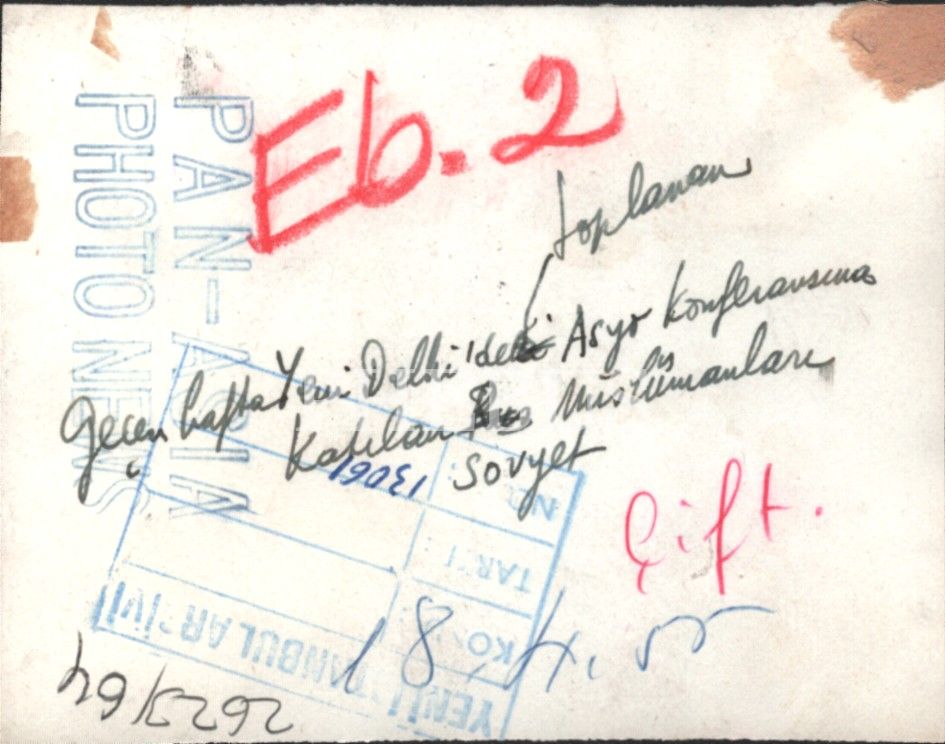 PAN-ASIA
PHOTO NEWS
Eb. 2
toplanan
Geçen hafta Yeni Delhi'deki Asya Konferansına
Katılan Müslümanları
Sovyet
Çift.
18.4.55
YENİ İSTANBUL ARŞİVİ
KO
TARİ
No.
13061